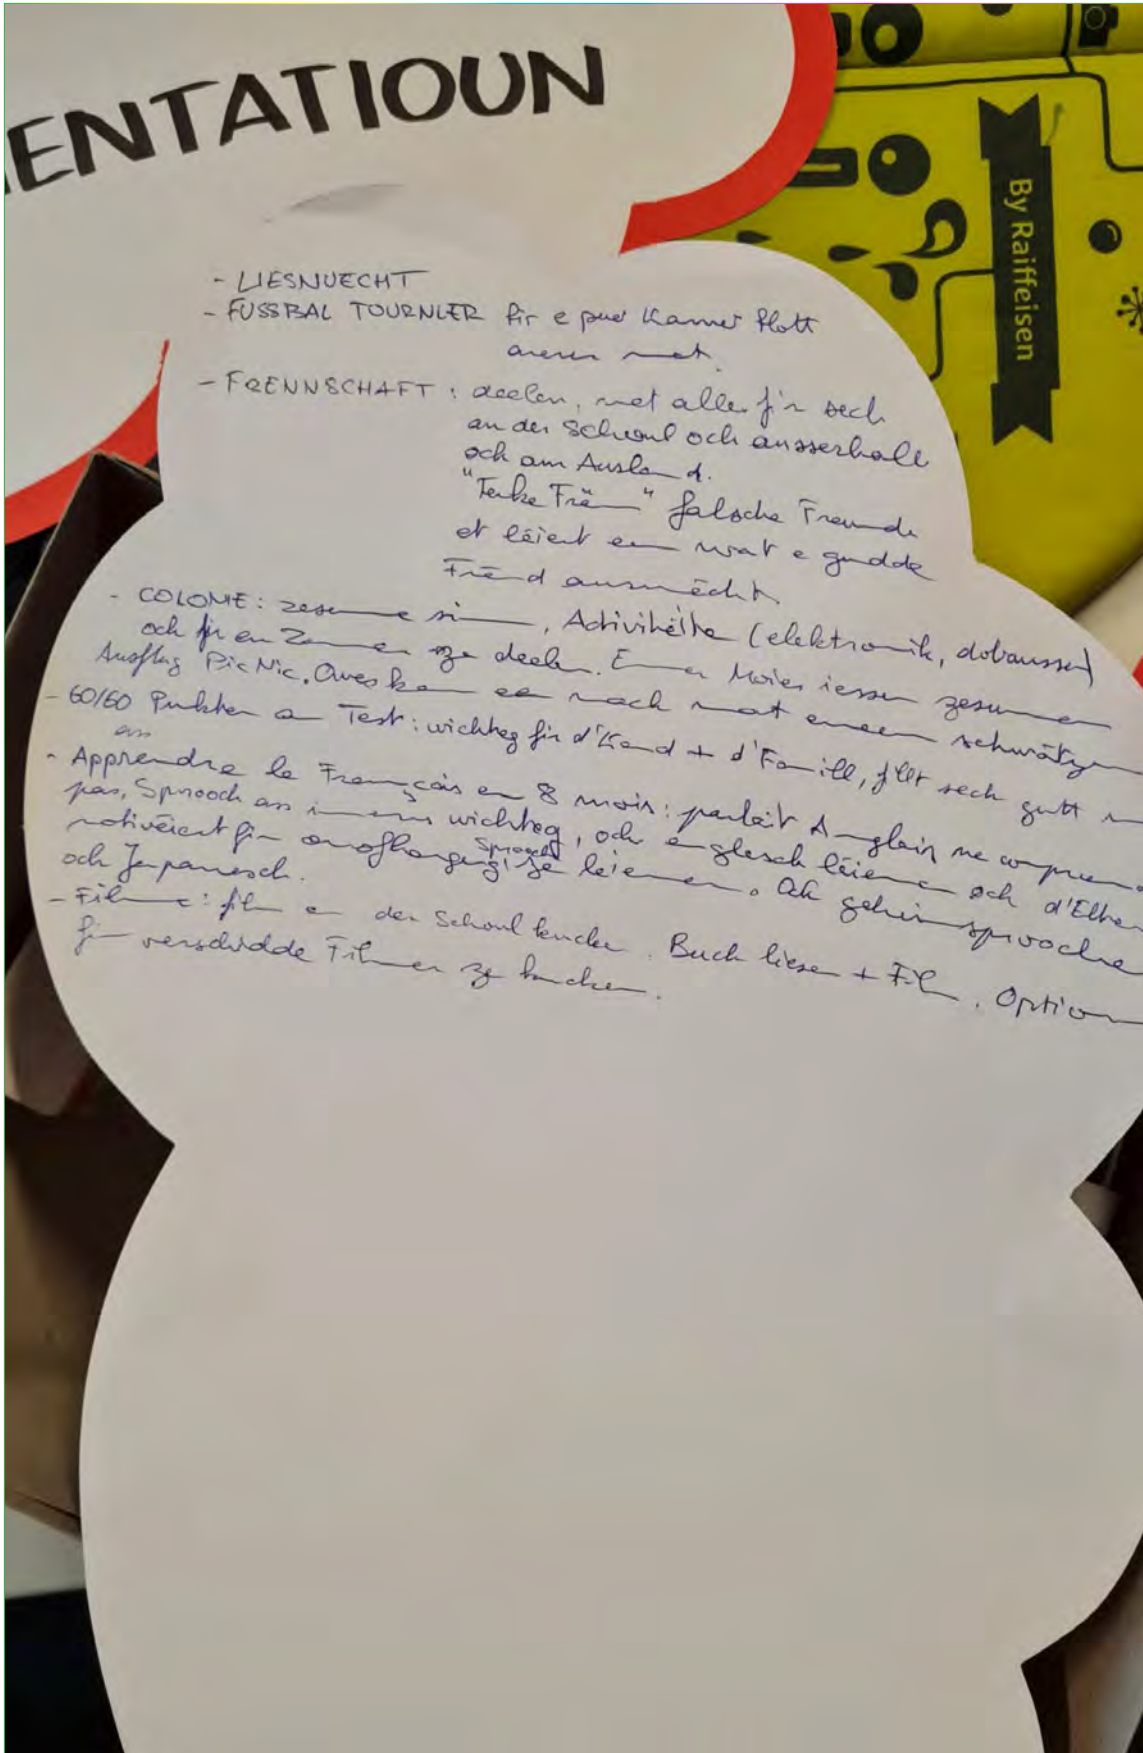 ENTATIOUN
By Raiffeisen
- LIESNUECHT
- FUSSBAL TOURNIER fir e puer Kanner flott
aner net.
- FRENNSCHAFT: deelen, net alles fir sech
an der Schoul och ausserhalb
och am Ausland.
"Falsche Freunde
et léiert een wat e gudde
Frënd ausmécht.
- COLONIE: zesumme sinn, Activitéite (elektronik, dobaussen)
och fir en Zemmer ze deelen. Emmer Moies iessen zesummen
Ausflug PicNic. Owes kann een nach mat engem schwätzen
- 60/60 Punkten am Test: wichteg fir d'Kand + d'Famill, fillt sech gutt
an
- Apprendre le Français en 8 mois: parlait Anglais ne
pas, Sprooch ass immens wichteg, och englesch léieren och d'Elter
motivéiert fir onofhängeg Sprooch ze léieren. Geheimsprooche
och Japanesch.
- Filme: film an der Schoul kucken. Buch liesen + Film. Option
fir verschidde Filmer ze kucken.